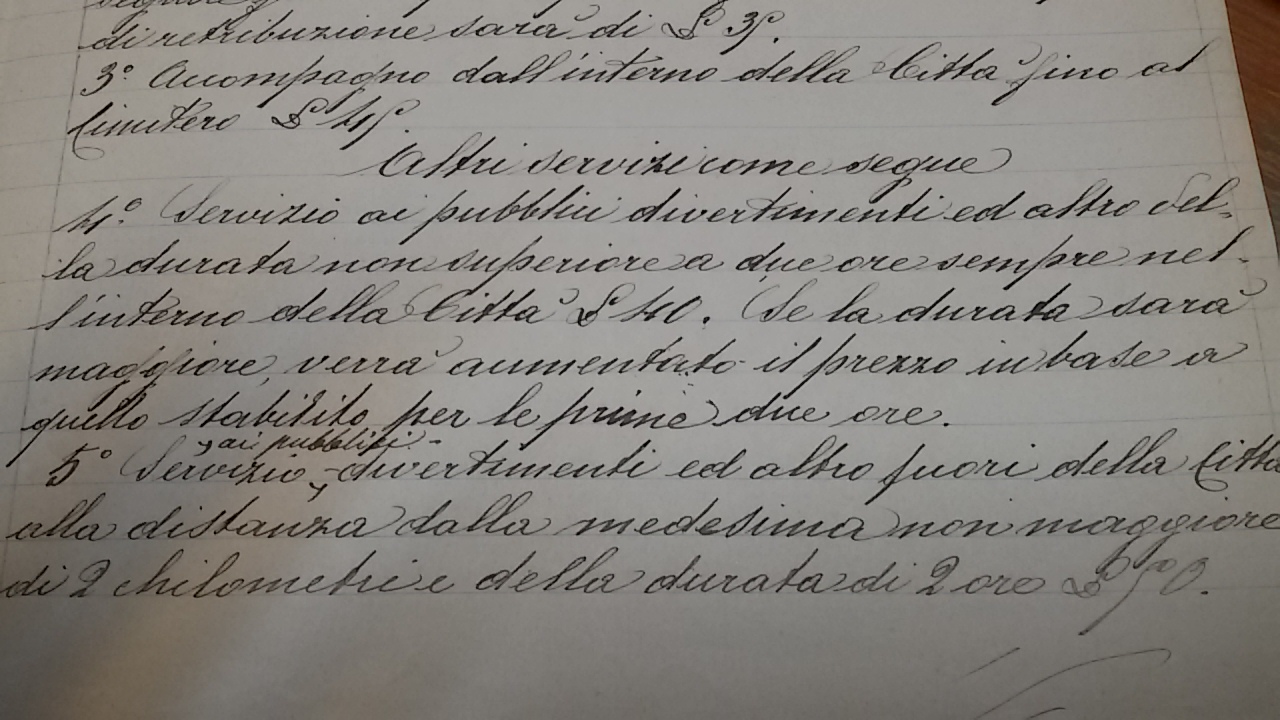 di retribuzione sarà di £ 35.
3° Accompagno dall'interno della Città fino al
Cimitero £ 45.
Altri servizi come segue
4° Servizio ai pubblici divertimenti ed altro del-
la durata non superiore a due ore sempre nel-
l'interno della Città £ 40. Se la durata sarà
maggiore, verrà aumentato il prezzo in base a
quello stabilito per le prime due ore.
ai pubblici
5° Servizio divertimenti ed altro fuori della Città
alla distanza dalla medesima non maggiore
di 2 chilometri e della durata di 2 ore £ 50.